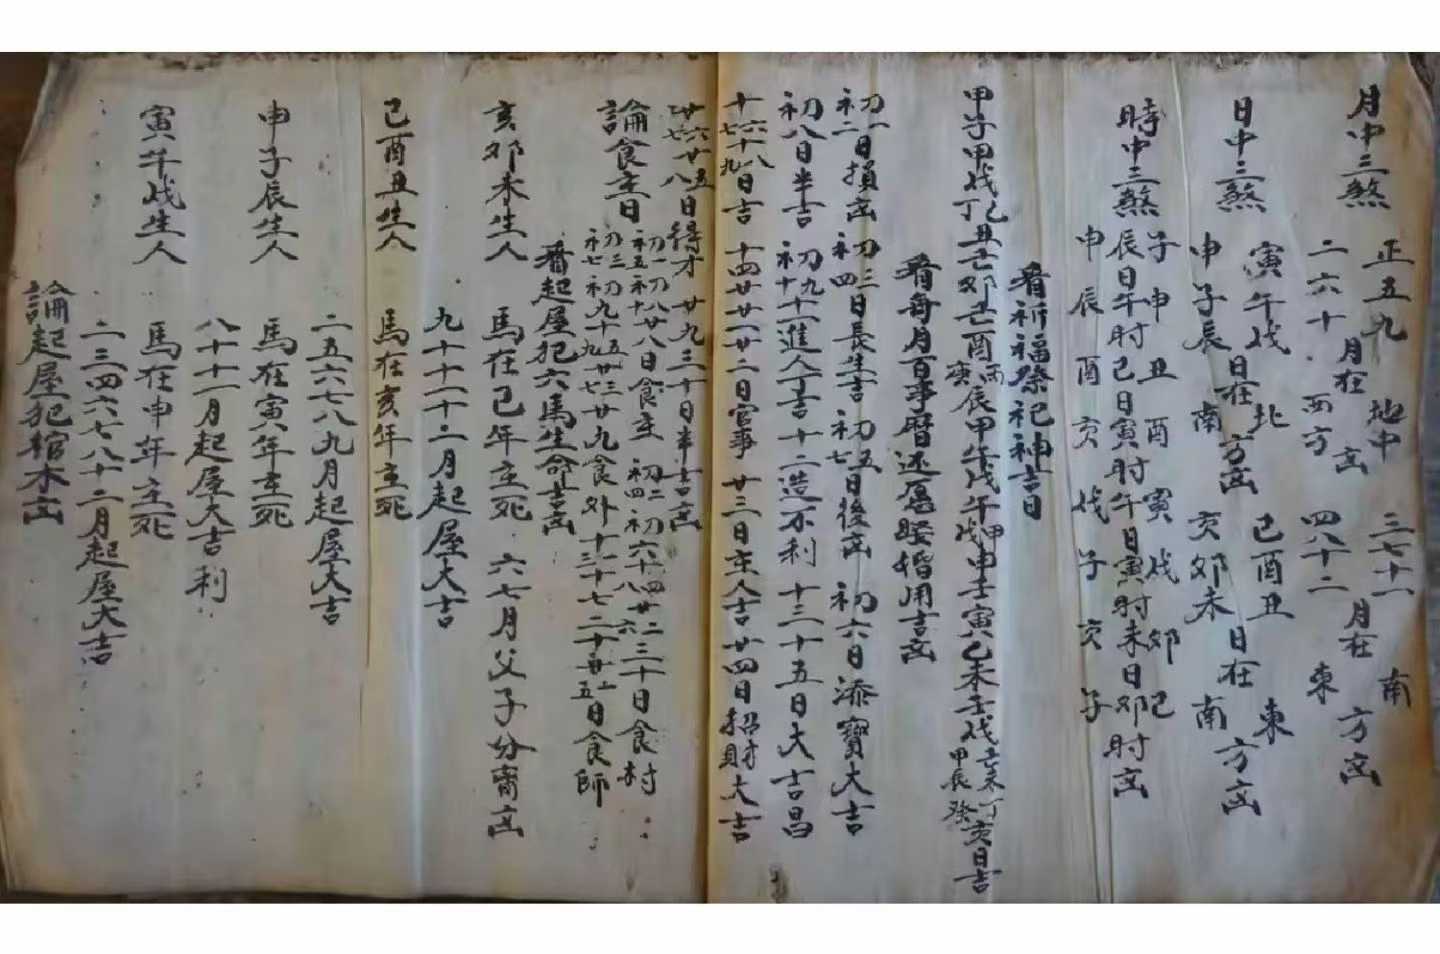 月中三煞 正五九 二六十 月在 地中 西方 凶 三七十一 四八十二 月在 南 東 方凶
日中三煞 寅午戌 申子辰 日在 北 南 方凶 巳酉丑 亥卯未 日在 東 南 方凶
時中三煞 子申丑酉寅戌卯巳
辰日午时巳日寅时午日寅时未日卯时凶
申辰酉亥戌子亥子
看祈福祭祀神吉日
甲子甲戌丁巳丑壬卯辛酉丙庚辰甲午戊午甲戌申壬寅乙未壬戌辛未丁甲辰癸亥日吉
看每月百事曆还愿睦婚用吉凶
初一初二日損凶 初三初四日長生吉 初五初七日後凶 初六日添寶大吉
初八日半吉 初九初十十一進人丁吉 十二造不利 十三十五日大吉昌
十六十七十八十九日吉 十四廿廿一廿二日官事 廿三日主人吉 廿四日招財大吉
廿六廿七廿五廿八日得才 廿九三十日半吉凶
論食主日 初一初五初八初十廿八日食主 初二初四初六十八十四廿二廿六三十日食村
初三初七初九十五十九廿三廿七廿九食外 十三十七二十廿一廿五日食師
看起屋犯六馬生命吉凶
亥卯未生人 馬在巳年主死 六七月父子分齊凶
九十十一十二月起屋大吉
巳酉丑生人 馬在亥年主死
二五六七八九月起屋大吉
申子辰生人 馬在寅年主死
八十十一月起屋大吉利
寅午戌生人 馬在申年主死
二三四六七八十二月起屋大吉
論起屋犯棺木凶